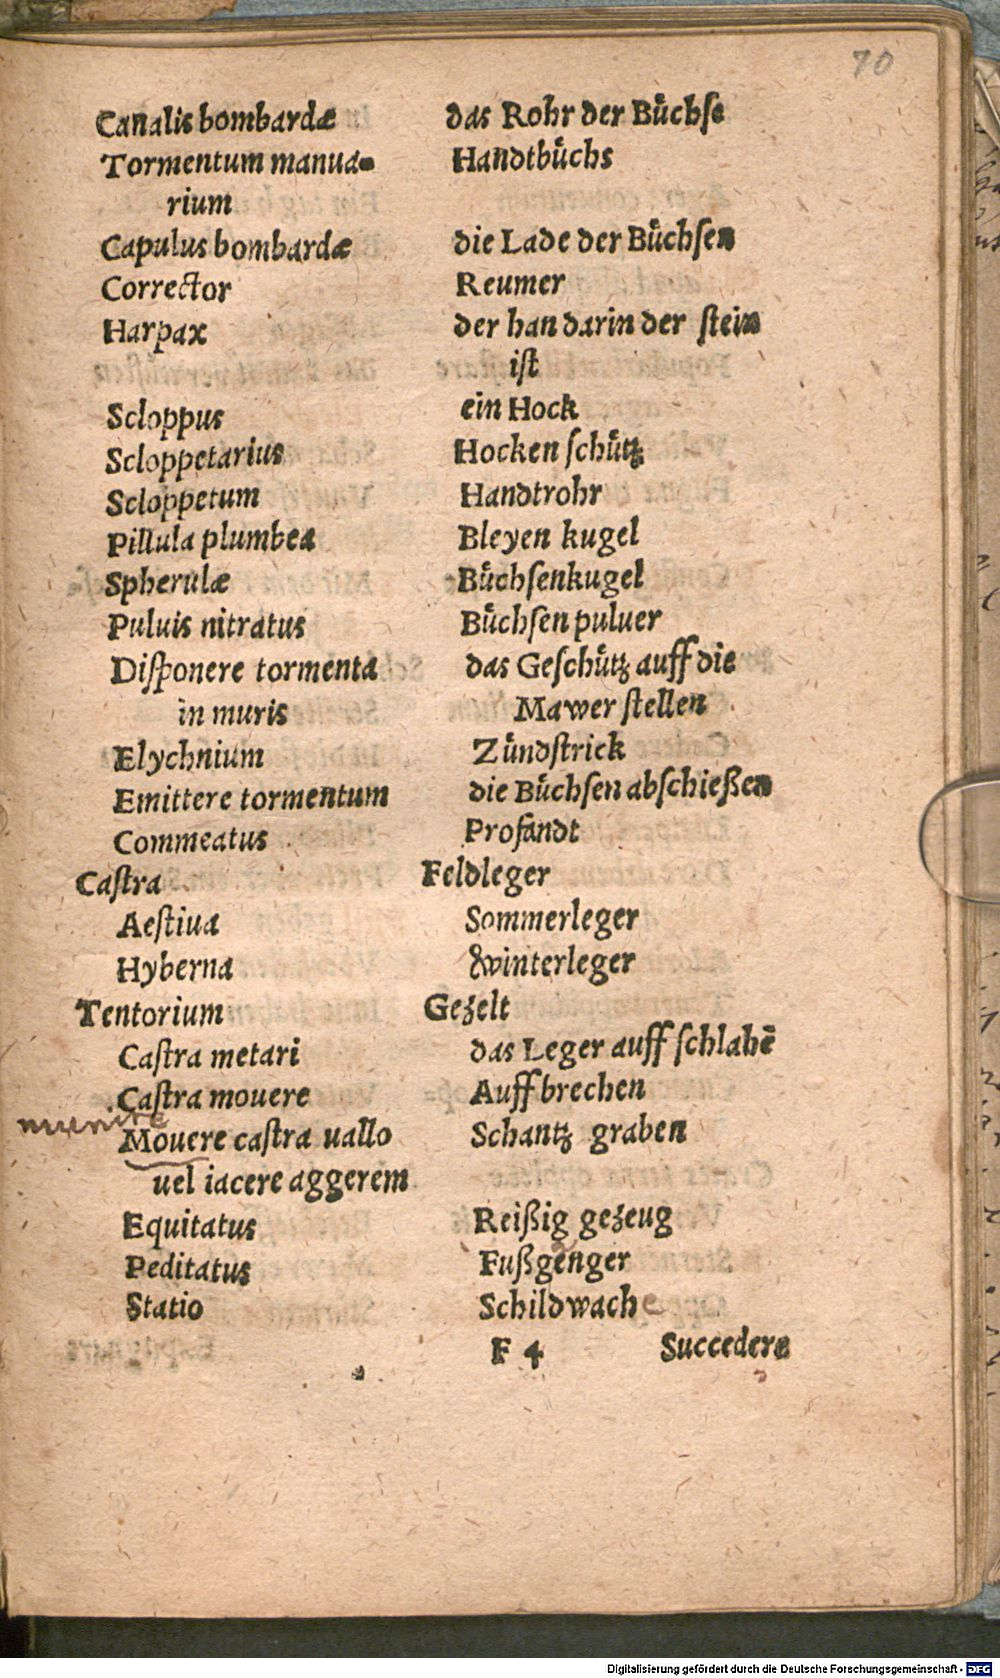 70
Canalis bombardæ das Rohr der Bůchse
Tormentum manua- Handtbůchs
rium
Capulus bombardæ die Lade der Bůchsen
Corrector Reumer
Harpax der han darin der stein
ist
Scloppus ein Hock
Scloppetarius Hocken schůtz
Scloppetum Handtrohr
Pillula plumbea Bleyen kugel
Spherulæ Bůchsenkugel
Puluis nitratus Bůchsen puluer
Disponere tormenta das Geschůtz auff die
in muris Mawer stellen
Elychnium Zůndstrick
Emittere tormentum die Bůchsen abschießen
Commeatus Profandt
Castra Feldleger
Aestiua Sommerleger
Hyberna winterleger
Tentorium Gezelt
Castra metari das Leger auff schlahē
Castra mouere Auff brechen
munire
Mouere castra uallo Schantz graben
uel iacere aggerem
Equitatus Reißig gezeug
Peditatus Fußgenger
Statio Schildwache
F 4 Succedere
Digitalisierung gefördert durch die Deutsche Forschungsgemeinschaft - DFG